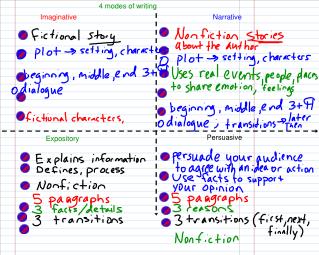 4 modes of writing
Imaginative
Fictional story
plot → setting, characte
beginning, middle, end 3+
dialogue
fictional characters,
Narrative
Nonfiction stories
about the author
plot → setting, characters
Uses real events, people, places
to share emotion, feelings
beginning, middle, end 3+¶
dialogue, transitions → later
then
Expository
Explains information
Defines, process
Nonfiction
5 paragraphs
3 facts/details
3 transitions
Persuasive
persuade your audience
to agree with an idea or action
Use facts to support
your opinion
5 paragraphs
3 reasons
3 transitions (first, next,
finally)
Nonfiction